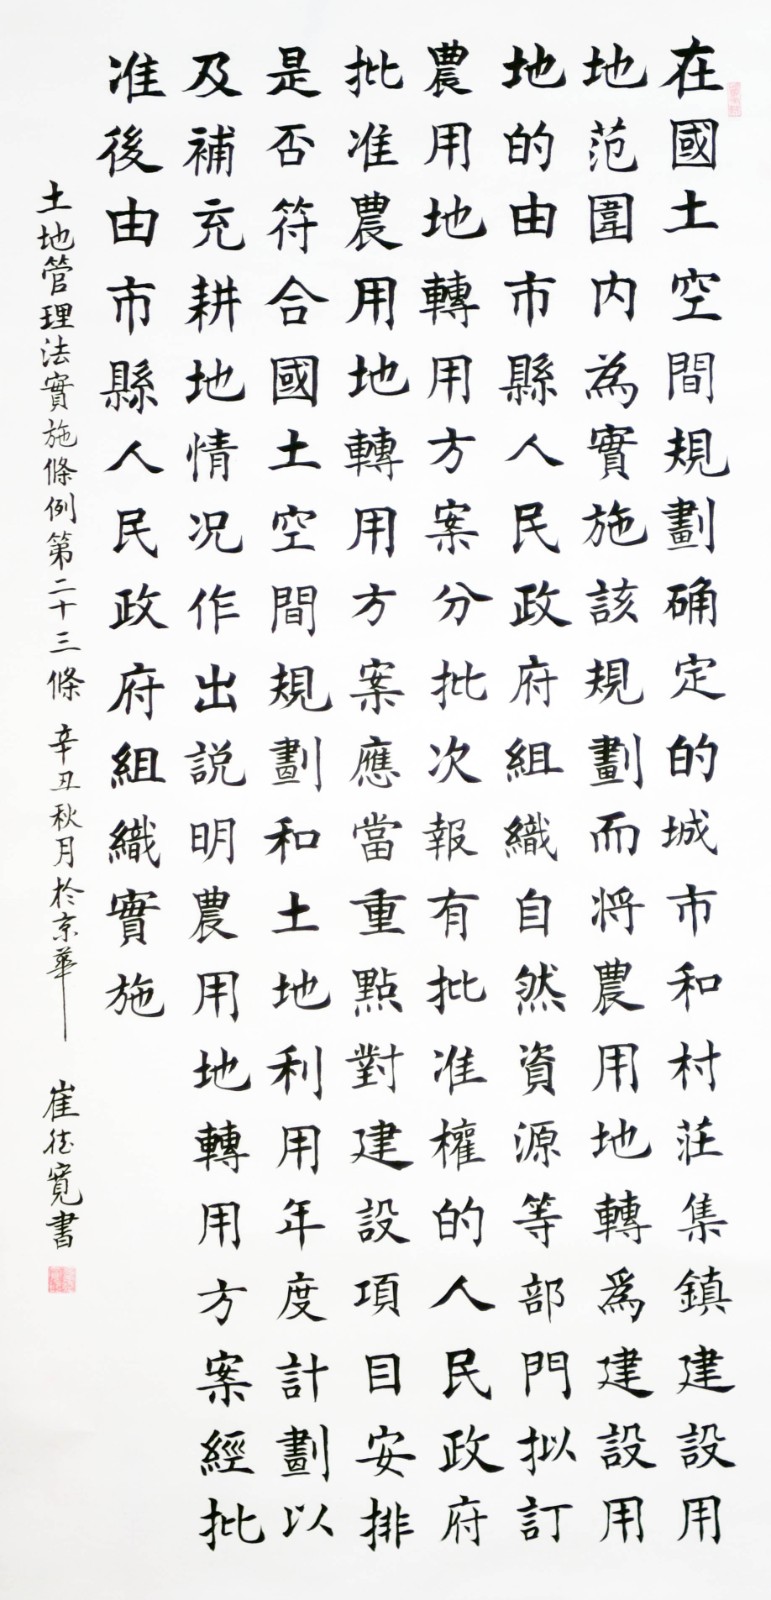 在國土空間規劃确定的城市和村莊集鎮建設用
地范圍内為實施該規劃而将農用地轉爲建設用
地的由市縣人民政府組織自然資源等部門拟訂
農用地轉用方案分批次報有批准權的人民政府
批准農用地轉用方案應當重點對建設項目安排
是否符合國土空間規劃和土地利用年度計劃以
及補充耕地情况作出説明農用地轉用方案經批
准後由市縣人民政府組織實施
土地管理法實施條例第二十三條 辛丑秋月於京華 崔德寬書